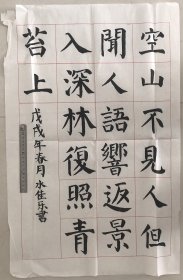 空山不見人但
聞人語響返景
入深林復照青
苔上
戊戌年春月永佳乐書